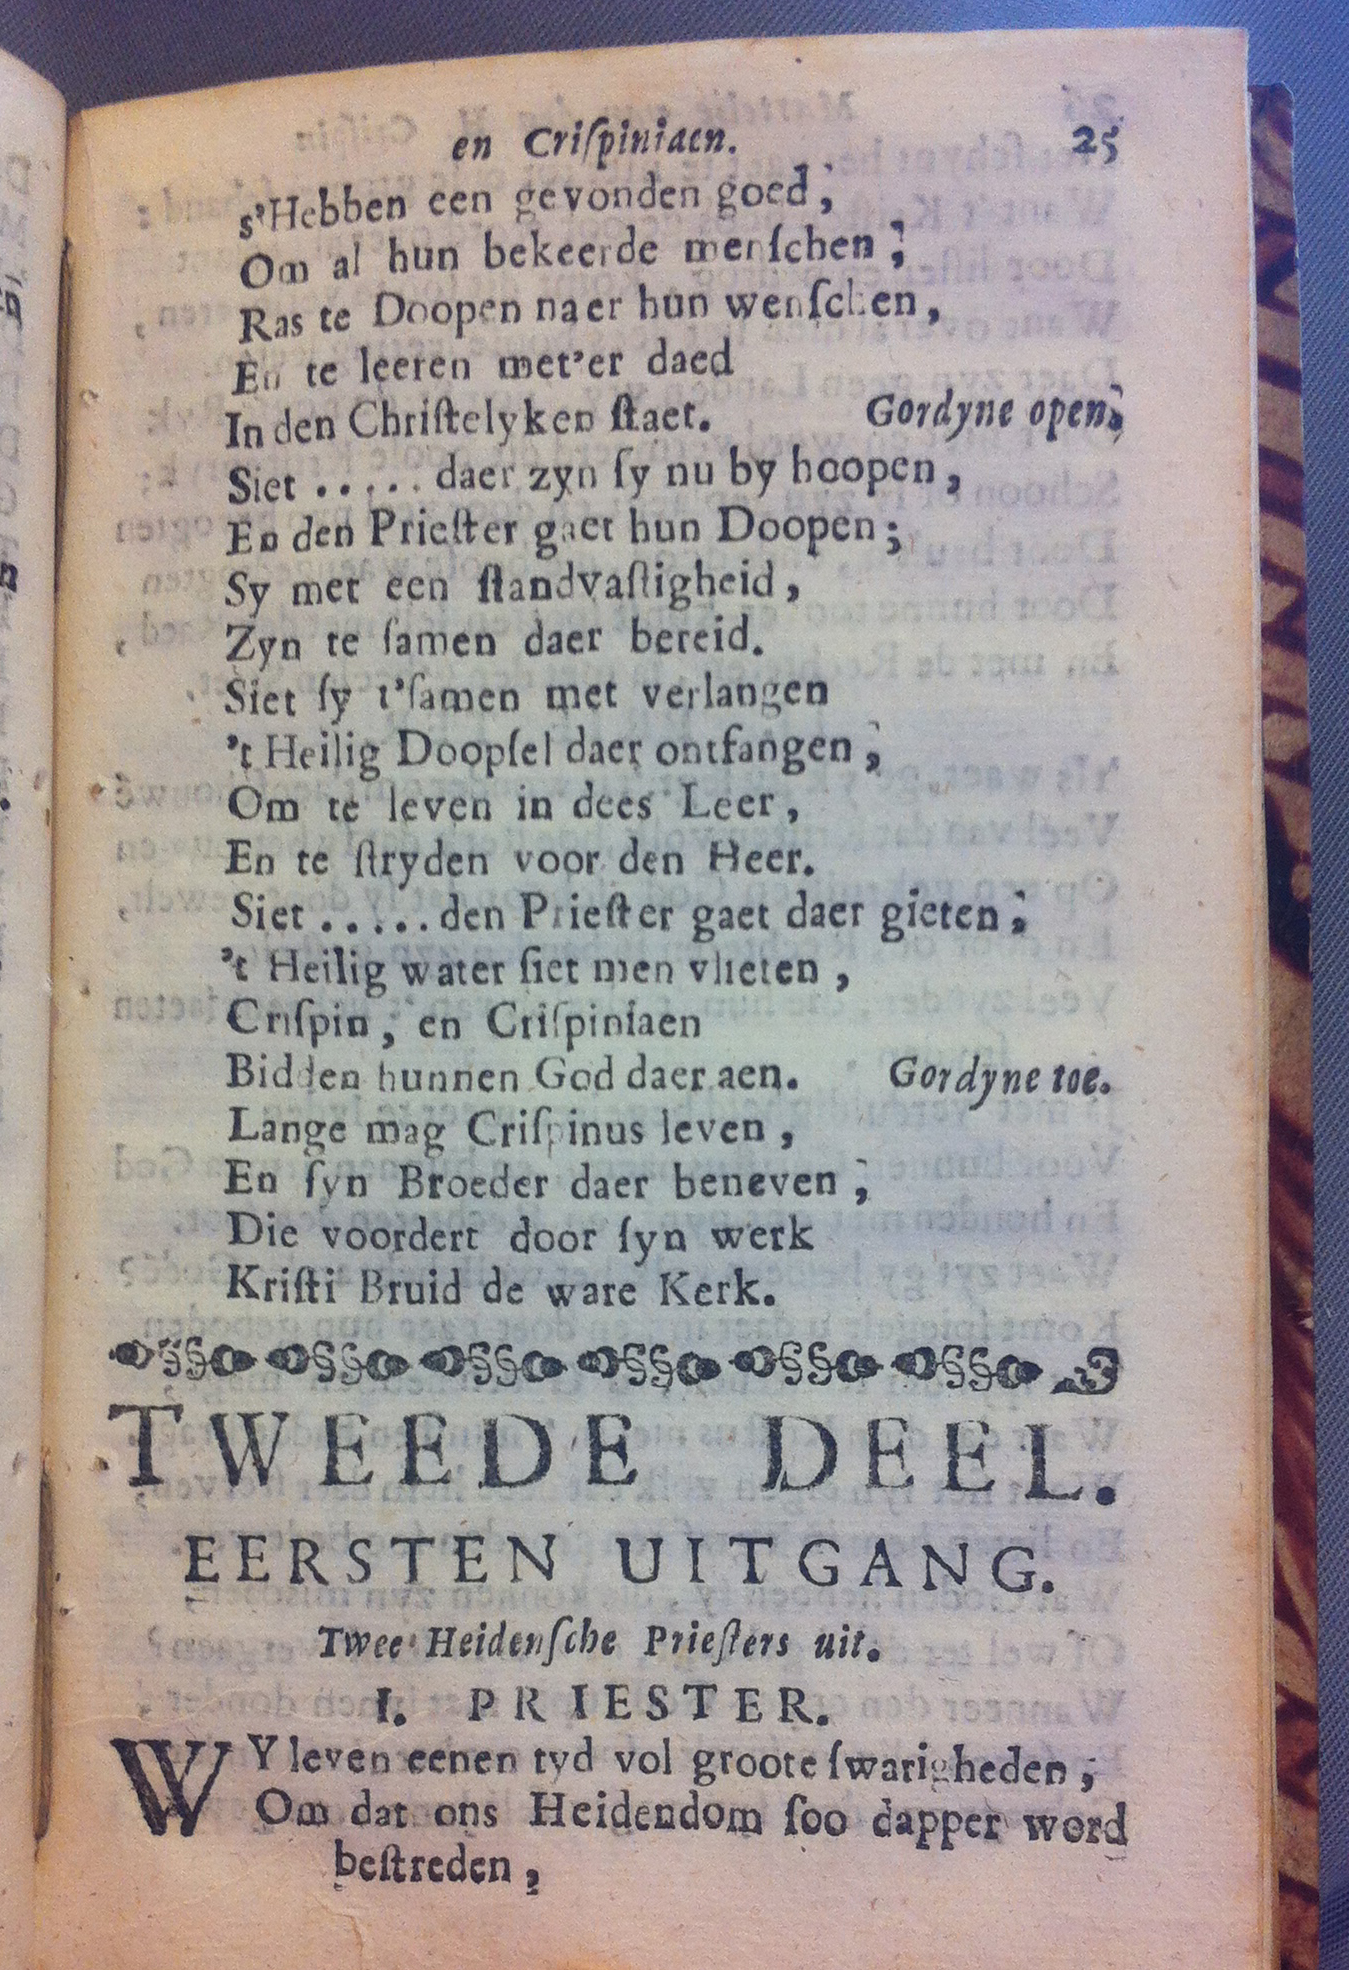 en Criſpiniaen. 25
s'Hebben een gevonden goed,
Om al hun bekeerde menſchen,
Ras te Doopen naer hun wenſchen,
En te leeren met'er daed
In den Chriſtelyken ſtaet. Gordyne open.
Siet ..... daer zyn ſy nu by hoopen,
En den Prieſter gaet hun Doopen;
Sy met een ſtandvaſtigheid,
Zyn te ſamen daer bereid.
Siet ſy t'ſamen met verlangen
't Heilig Doopſel daer ontfangen,
Om te leven in dees Leer,
En te ſtryden voor den Heer.
Siet ..... den Prieſter gaet daer gieten,
't Heilig water ſiet men vlieten,
Criſpin, en Criſpiniaen
Bidden hunnen God daer aen. Gordyne toe.
Lange mag Criſpinus leven,
En ſyn Broeder daer beneven,
Die voordert door ſyn werk
Kriſti Bruid de ware Kerk.
TWEEDE DEEL.
EERSTEN UITGANG.
Twee Heidenſche Prieſters uit.
I. PRIESTER.
WY leven eenen tyd vol groote ſwarigheden,
Om dat ons Heidendom ſoo dapper word
beſtreden,